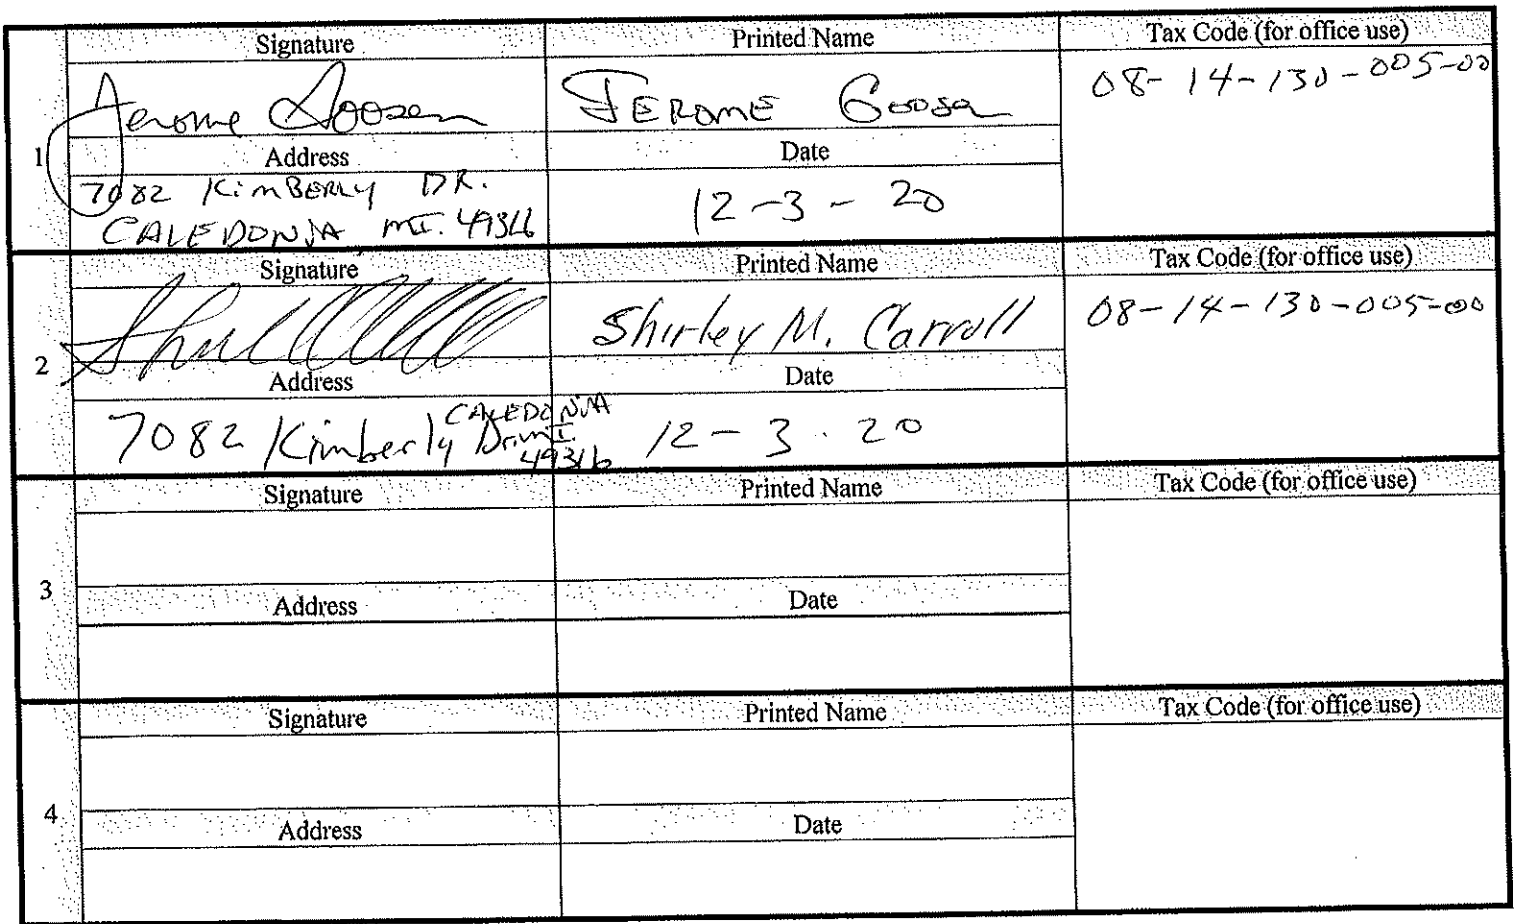 Signature Printed Name Tax Code (for office use)
Jerome Goosen JEROME Goosen 08-14-130-005-00
1 Address Date
7082 KimBERLY DR. 12-3-20
CALEDONIA MI. 49316
Signature Printed Name Tax Code (for office use)
Shirley M. Carroll 08-14-130-005-00
2 Address Date
7082 Kimberly Dr. CALEDONIA MI. 49316 12-3.20
Signature Printed Name Tax Code (for office use)
3 Address Date
Signature Printed Name Tax Code (for office use)
4 Address Date